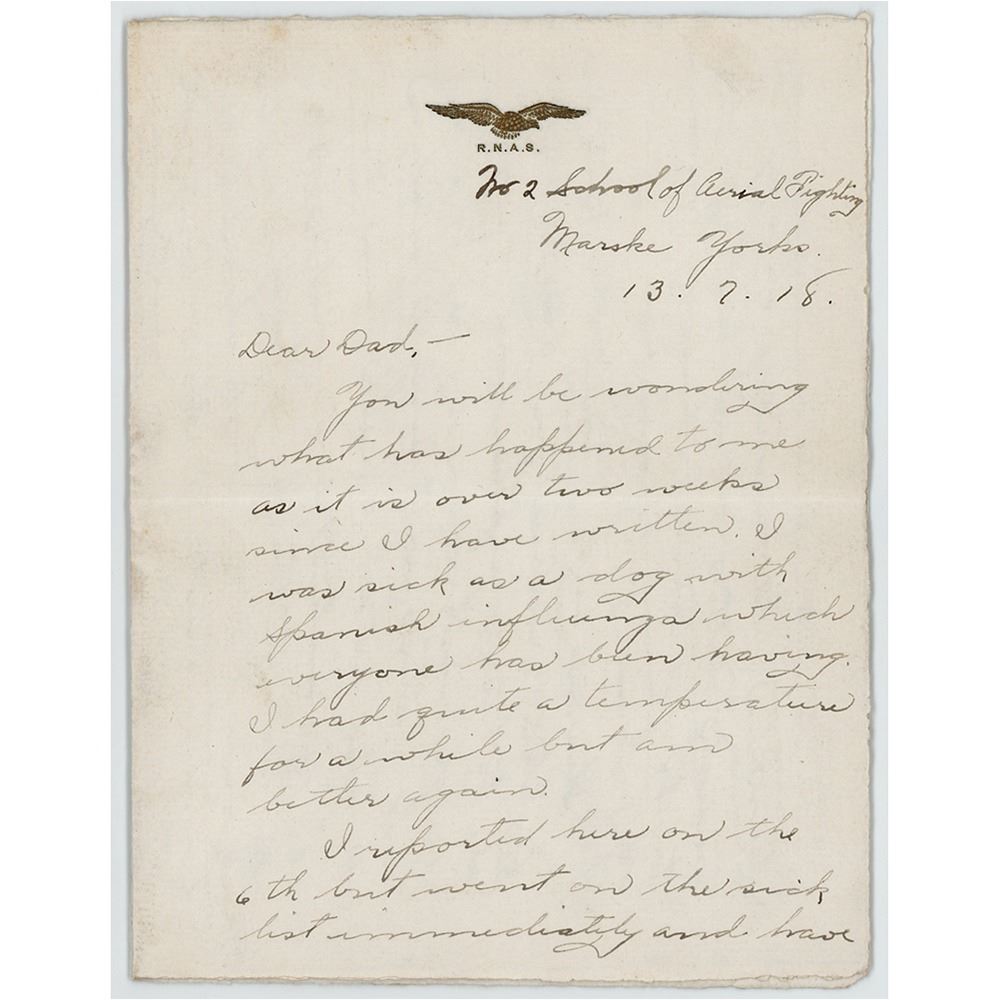 R.N.A.S.
No 2 School of Aerial Fighting
Marske Yorks.
13. 7. 18.
Dear Dad,—
You will be wondering
what has happened to me
as it is over two weeks
since I have written. I
was sick as a dog with
Spanish influenza which
everyone has been having.
I had quite a temperature
for a while but am
better again.
I reported here on the
6th but went on the sick
list immediately and have